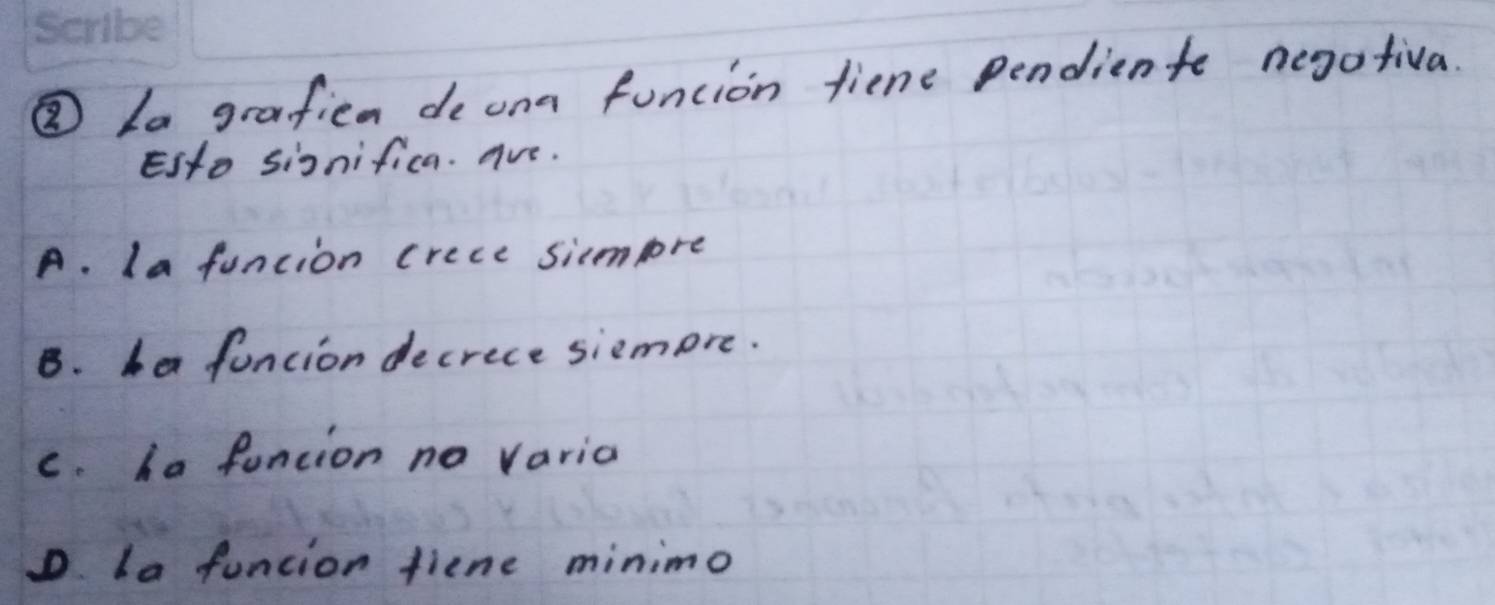 Scribe
② La grafica de una función tiene pendiente negativa.
Esto significa. que.
A. La función crece siempre
B. La función decrece siempre.
C. La función no varia
D. La función tiene minimo